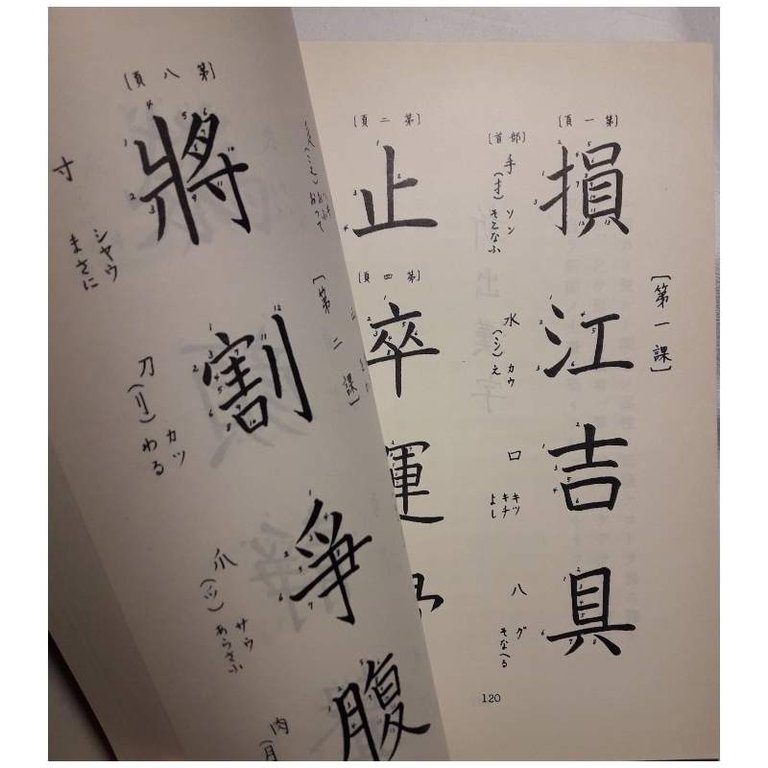 〔第一課〕
〔第一頁〕
損 江 吉 具
〔部首〕
手（扌） ソン そこなふ
水（氵） カウ え
口 キツ キチ よし
八 グ そなへる
〔第二頁〕
止
〔第四頁〕
卒 運
〔第二課〕
〔第八頁〕
將 割 爭 腹
寸 シヤウ まさに
刀（刂） カツ わる
爪（爫） サウ あらさふ
肉（月
120